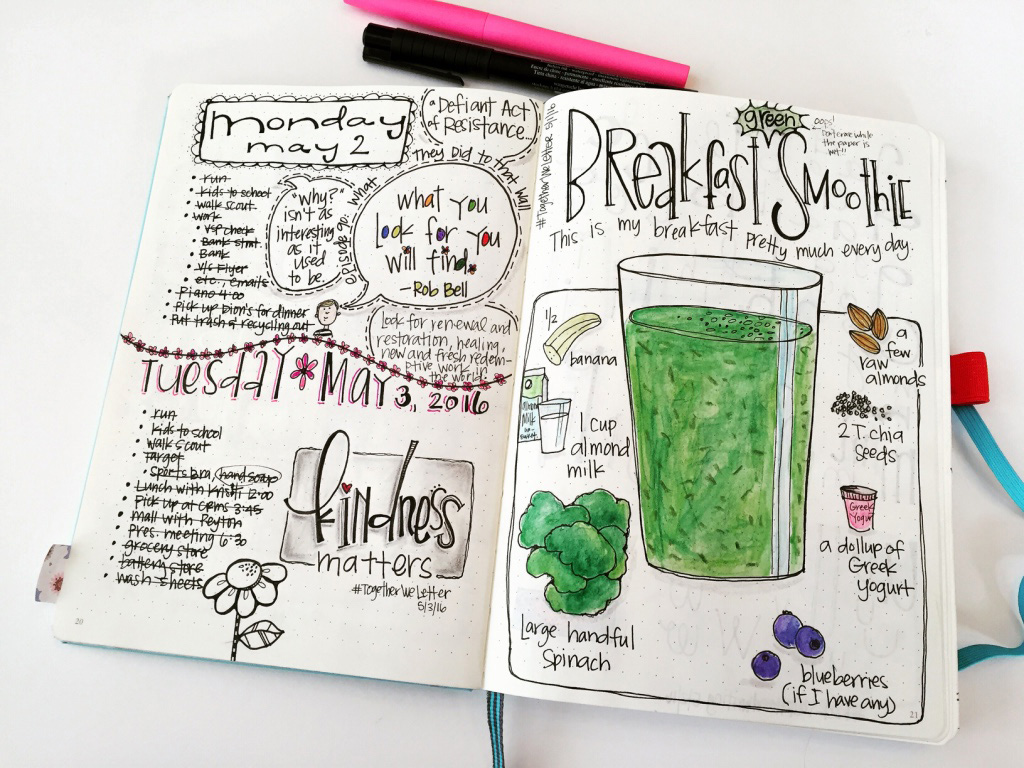 monday
may 2
run
kids to school
walk scout
work
VSP check
Bank stmt.
Bank
V/C Flyer
etc., emails
Piano 4:00
Pick up Dion's for dinner
Put trash & recycling out
"why?"
isn't as
interesting
as it
used
to be.
a Defiant Act
of Resistance...
They Did to that Wall
Episode 90: What
what you
look for you
will find.
-Rob Bell
Look for renewal and
restoration, healing,
new and fresh redem-
ptive work in
the world!
Tuesday May 3, 2016
run
kids to school
walk scout
Target
Sports Bra, hand soap
Lunch with Kristi 12:00
Pick up at CRMS 3:45
mall with Peyton
Pres. meeting 6:30
grocery store
battery store
wash sheets
kindness
matters
#TogetherWeLetter
5/3/16
20
#TogetherWeLetter 5/1/16
green
oops!
Don't erase while
the paper is
wet!!
Breakfast Smoothie
This is my breakfast pretty much every day.
1/2
banana
Almond
Milk
1 cup
almond
milk
large handful
Spinach
a
few
raw
almonds
2 T. chia
seeds
Greek
Yogurt
a dollup of
Greek
yogurt
blueberries
(if I have any)
21